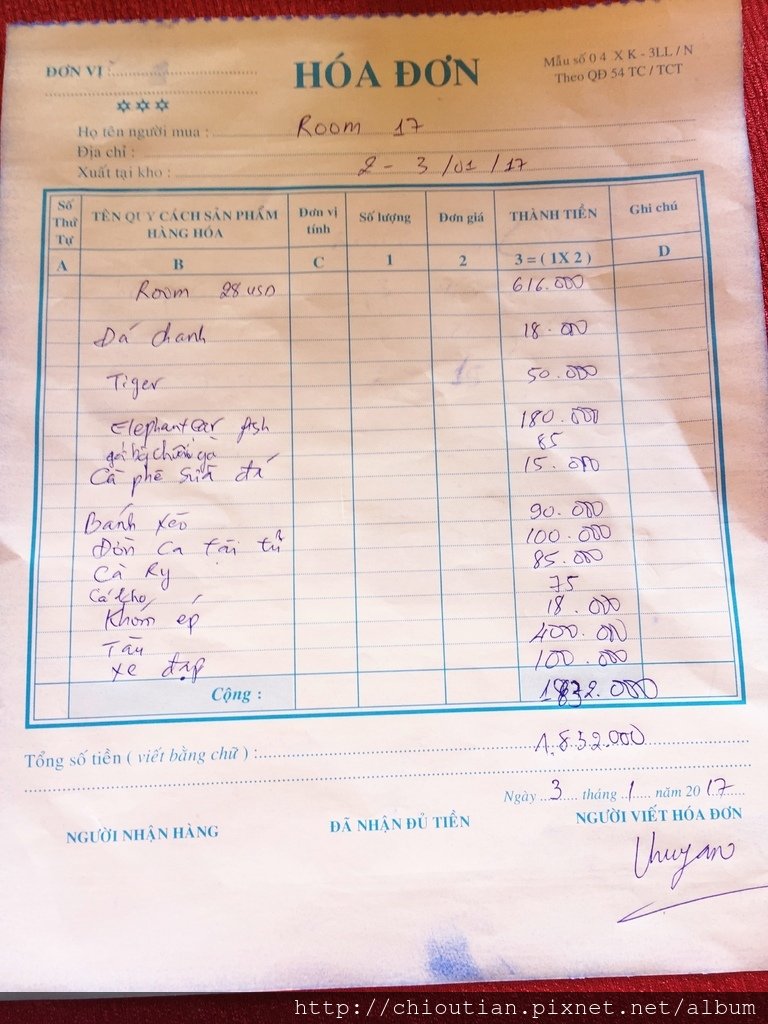 ĐƠN VỊ :
HÓA ĐƠN
Mẫu số 04 X K - 3LL / N
Theo QĐ 54 TC / TCT
Họ tên người mua : Room 17
Địa chỉ :
Xuất tại kho : 2 - 3 /01 / 17
Số Thứ Tự TÊN QUY CÁCH SẢN PHẨM HÀNG HÓA Đơn vị tính Số lượng Đơn giá THÀNH TIỀN Ghi chú
A B C 1 2 3 = ( 1X 2 ) D
Room 28 USD 616.000
Đá chanh 18.000
Tiger 50.000
Elephant ear fish 180.000
85
Cà phê sữa đá 15.000
Bánh xèo 90.000
Đờn ca tài tử 100.000
Cà Ry 85.000
Cá kho 75
Khóm ép 18.000
Tàu 400.000
xe đạp 100.000
Cộng : 1832.000
Tổng số tiền ( viết bằng chữ ) : 1.832.000
Ngày 3 tháng 1 năm 2017
NGƯỜI NHẬN HÀNG ĐÃ NHẬN ĐỦ TIỀN NGƯỜI VIẾT HÓA ĐƠN
http://chioutian.pixnet.net/album